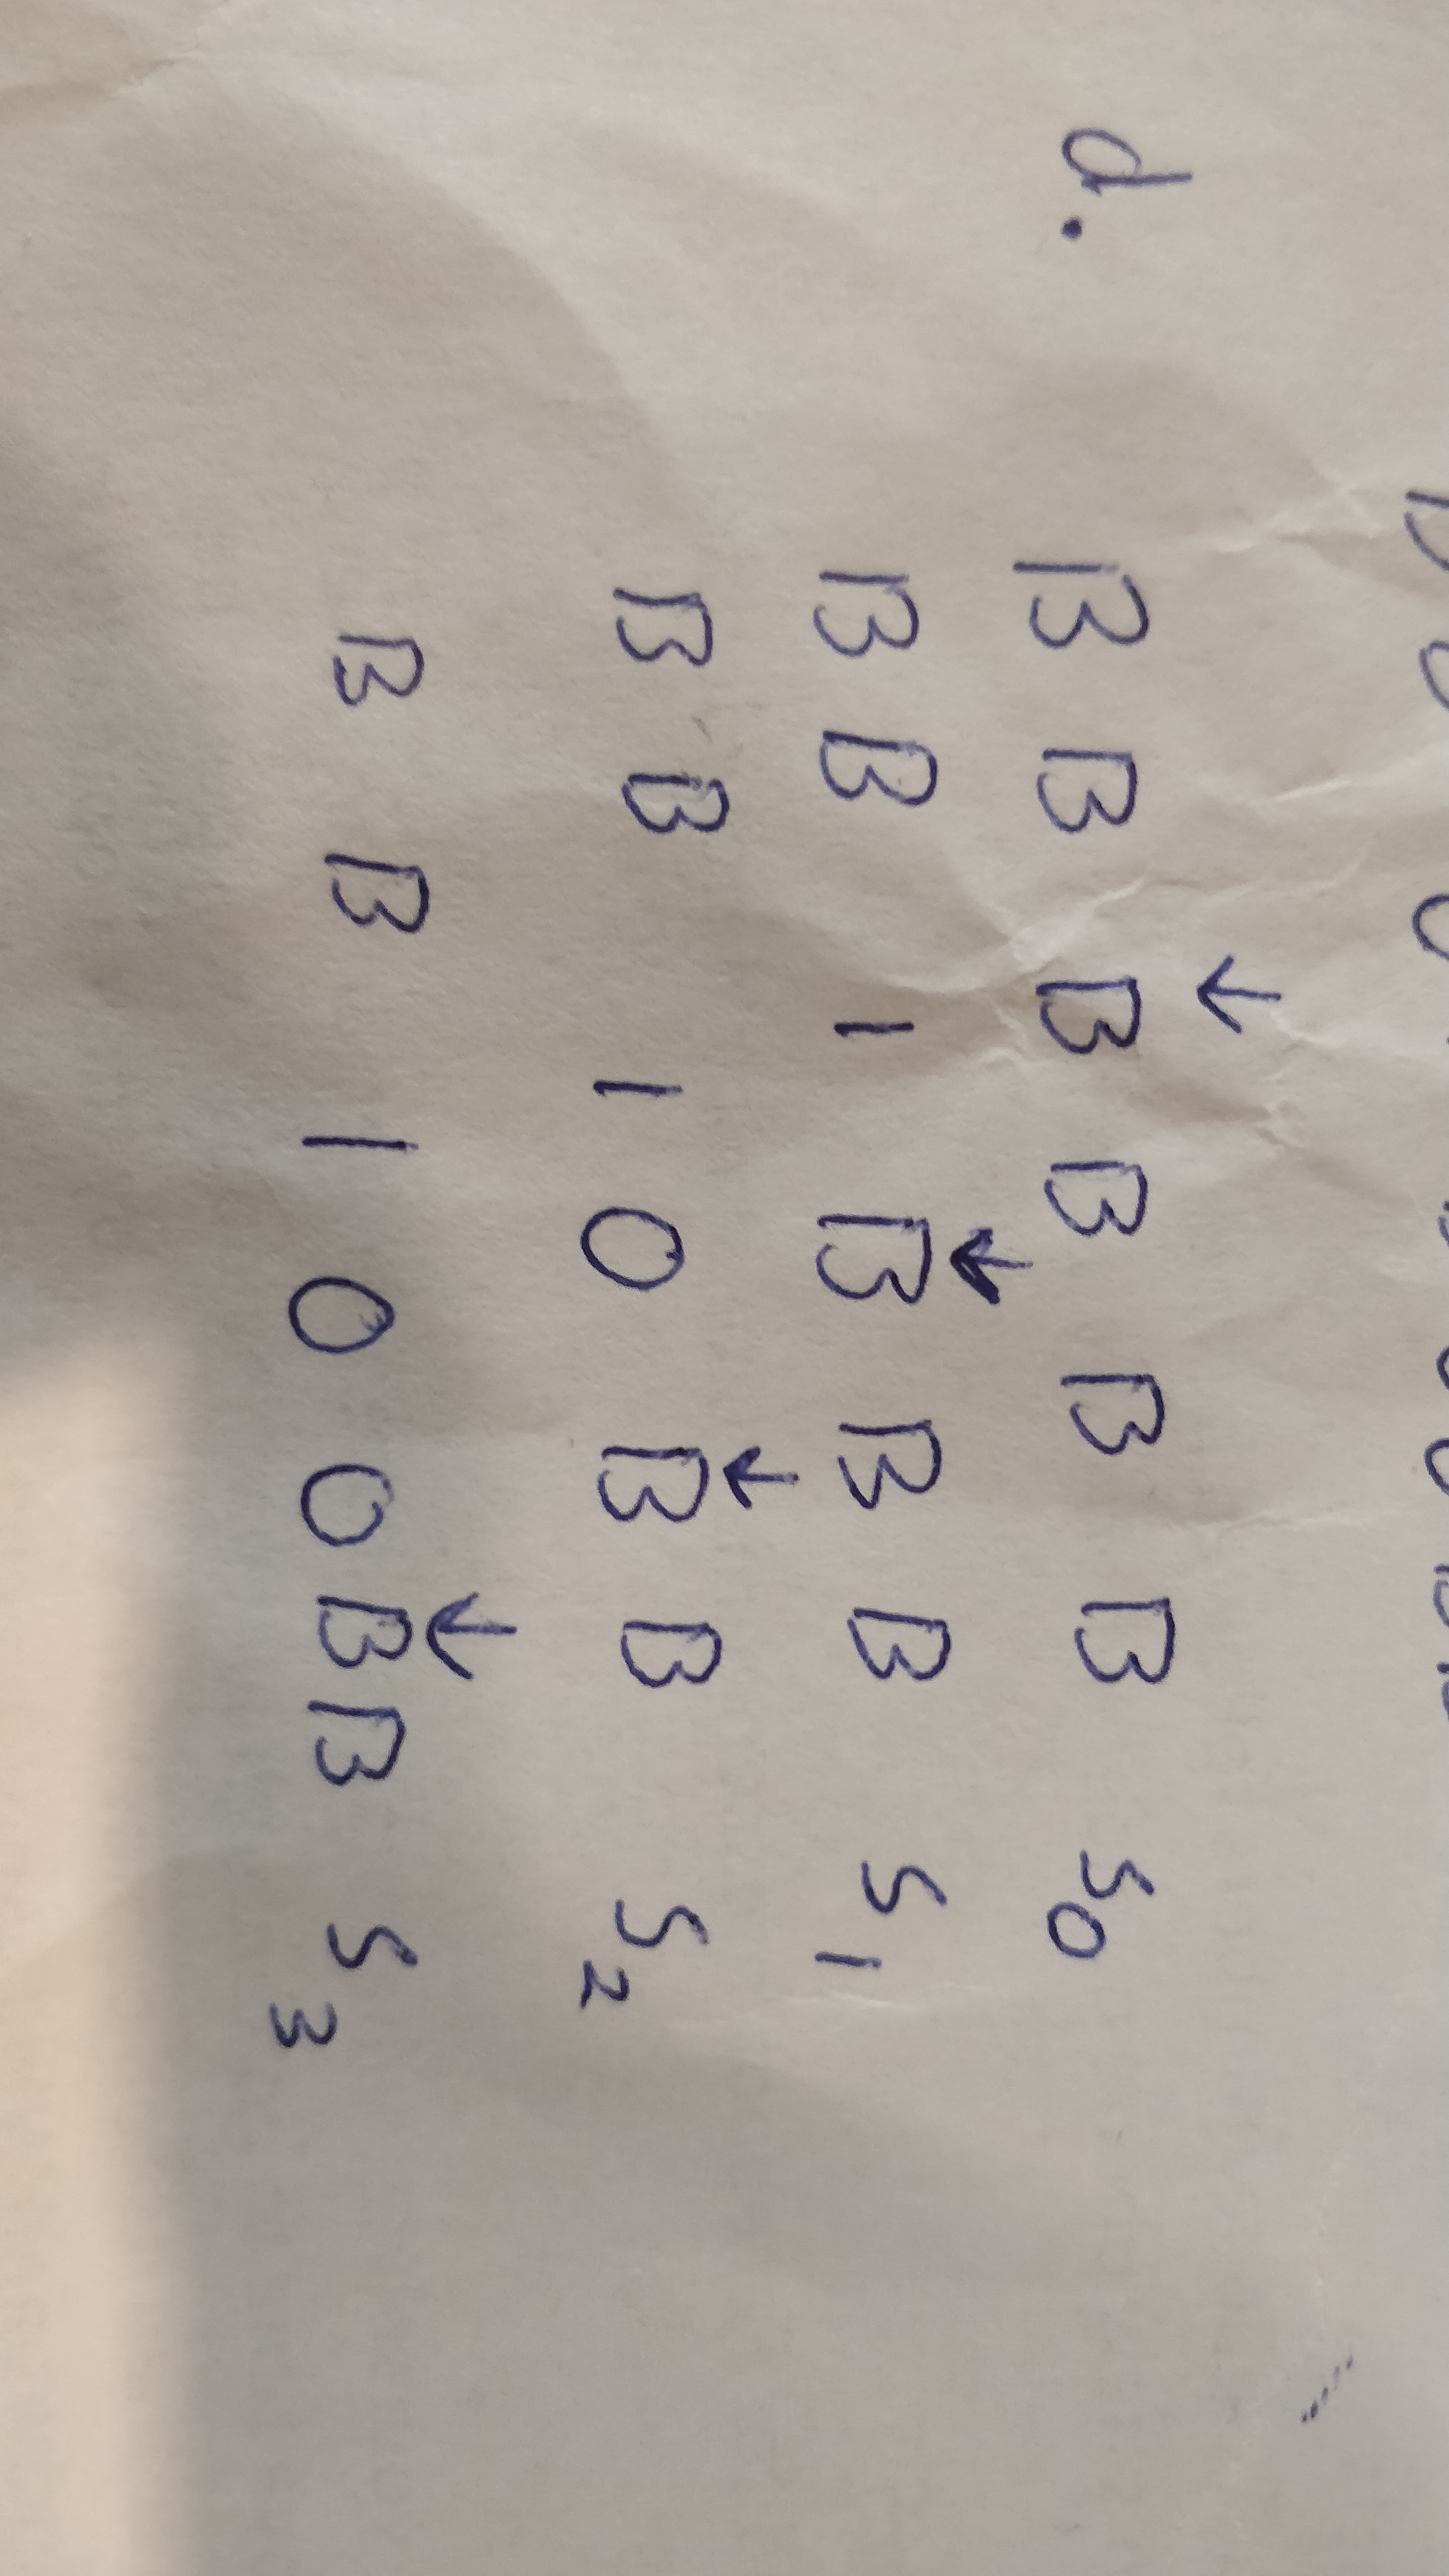 ↓
d. B B B B B B S0
↓
B B 1 B B B S1
↓
B B 1 0 B B S2
↓
B B 1 0 0 B B S3